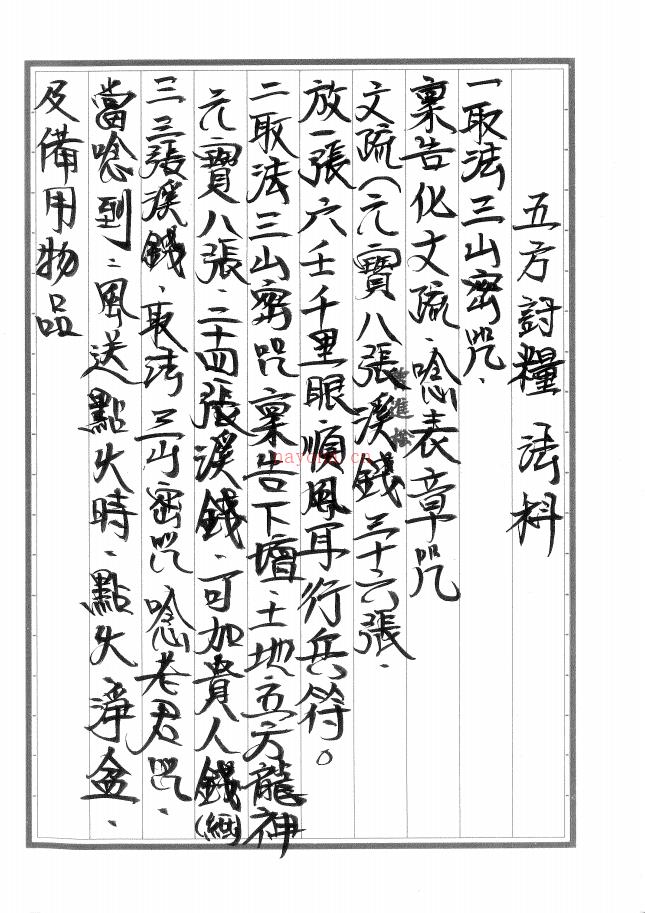 五方討糧 法科
一取法三山密咒、
稟告化文疏、唸表章咒
文疏(元寶八張溪錢三十六張、
放一張六壬千里眼順風耳行兵符。
二取法三山密咒稟告下壇、土地五方龍神
元寶八張、二十四張溪錢、可加貴人錢(綑)
三三張溪錢、取法三山密咒、唸老君咒、
當唸到:風送點火時、點火淨盆、
及備用物品
nayona.cn